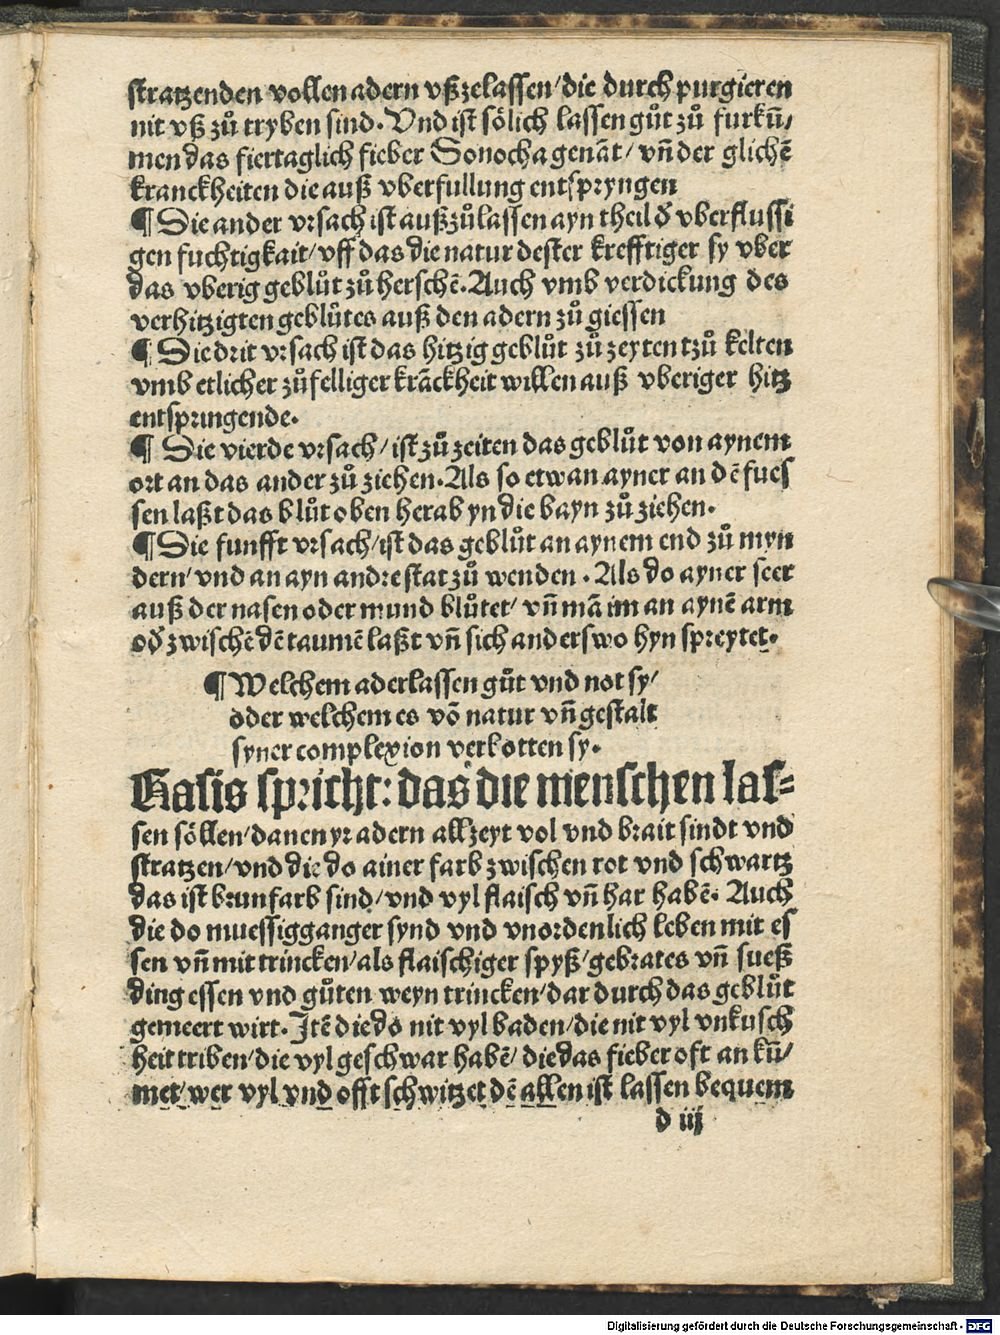 stratzenden vollen adern vßzelassen/die durch purgieren
nit vß zů tryben sind. Vnd ist sölich lassen gůt zů furkū/
men das fiertaglich fieber Sonocha genāt/ vn̄ der glichē
kranckheiten die auß vberfullung entspryngen
¶ Die ander vrsach ist außzůlassen ayn theil ð vberflussi
gen fuchtigkait/ vff das die natur dester krefftiger sy vber
das vberig geblůt zů herschē. Auch vmb verdickung des
verhitzigten geblůtes auß den adern zů giessen
¶ Die drit vrsach ist das hitzig geblůt zů zeyten tzů kelten
vmb etlicher zůfelliger krāckheit willen auß vberiger hitz
entspringende.
¶ Die vierde vrsach/ ist zů zeiten das geblůt von aynem
ort an das ander zů ziehen. Als so etwan ayner an dē fues
sen laßt das blůt oben herab yn die bayn zů ziehen.
¶ Die funfft vrsach/ist das geblůt an aynem end zů myn
dern/ vnd an ayn andre stat zů wenden. Als do ayner seer
auß der nasen oder mund blůtet/ vn̄ mā im an aynē arm
oð zwischē dē taumē laßt vn̄ sich anderswo hyn spreytet.
¶ Welchem aderlassen gůt vnd not sy/
oder welchem es vō natur vn̄ gestalt
syner complexion verbotten sy.
Rasis spricht: das die menschen las-
sen söllen/ danen yr adern allzeyt vol vnd brait sindt vnd
stratzen/ vnd die do ainer farb zwischen rot vnd schwartz
das ist brunfarb sind/ vnd vyl flaisch vn̄ har habē. Auch
die do muessigganger synd vnd vnordenlich leben mit es
sen vn̄ mit trincken/ als flaischiger spyß/ gebrates vn̄ sueß
ding essen vnd gůten weyn trincken/ dar durch das geblůt
gemeert wirt. Itē die do nit vyl baden/ die nit vyl vnkusch
heit triben/ die vyl geschwar habē/ die das fieber oft an kū/
met/ wer vyl vnd offt schwitzet dē allen ist lassen bequem
d iij
Digitalisierung gefördert durch die Deutsche Forschungsgemeinschaft - DFG